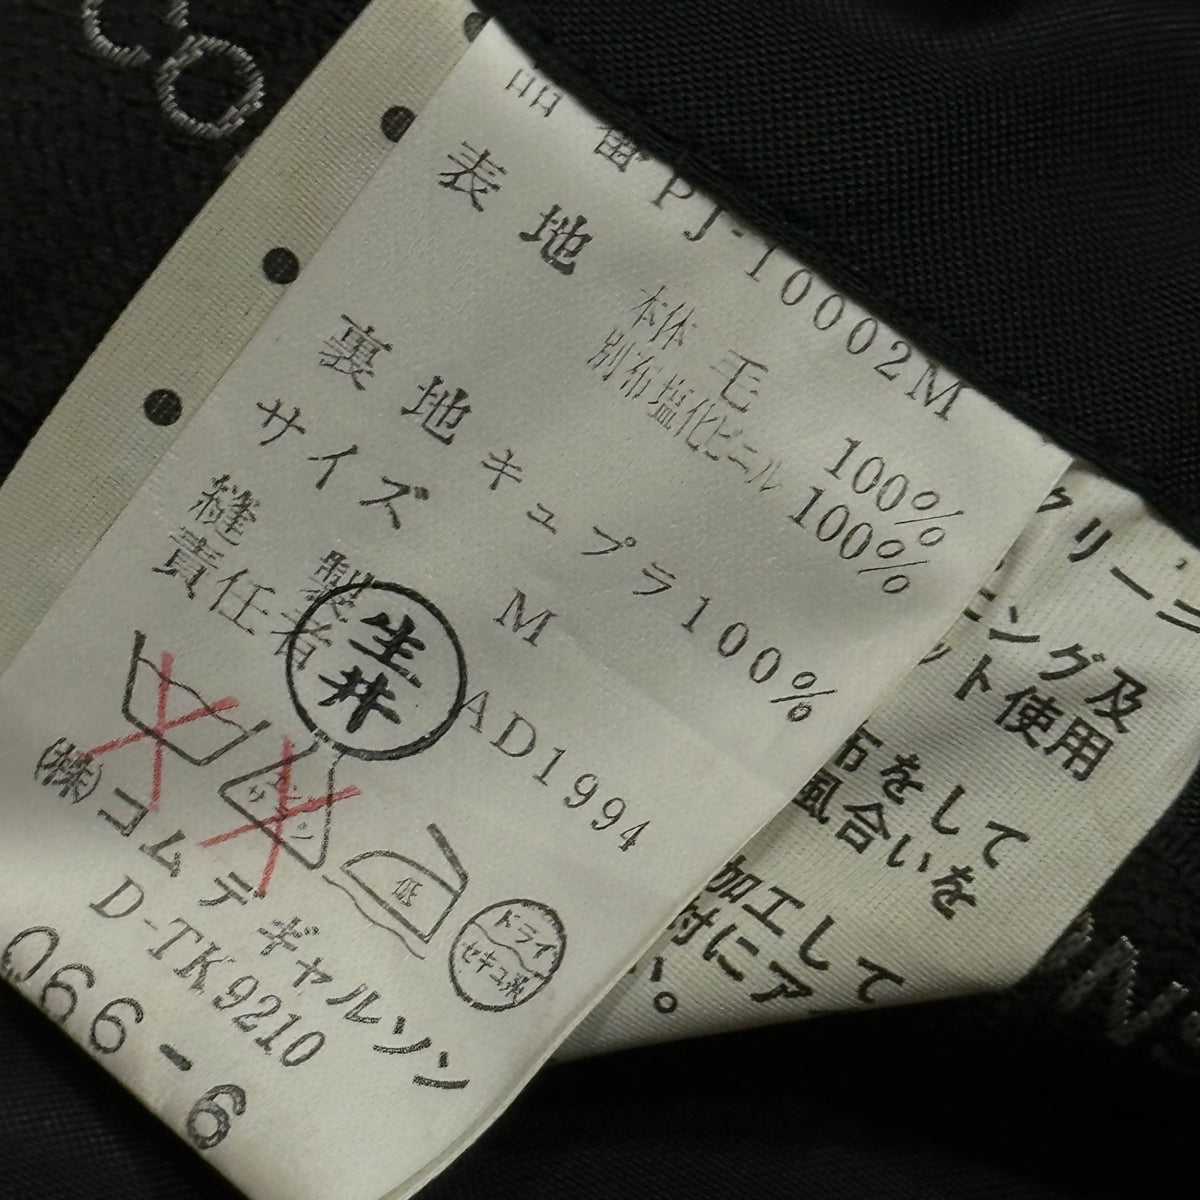 品番 PJ-10002M
表地 本体 毛 100%
別布塩化ビニル 100%
裏地 キュプラ100%
サイズ M
縫製 責任者 生井 AD1994
エンソサラシ
低
ドライ
セキユ系
(株)コムデギャルソン
D-TK9210
066-6
クリーニ
ニング及
ット使用
布をして
風合いを
加工して
対にア
い。